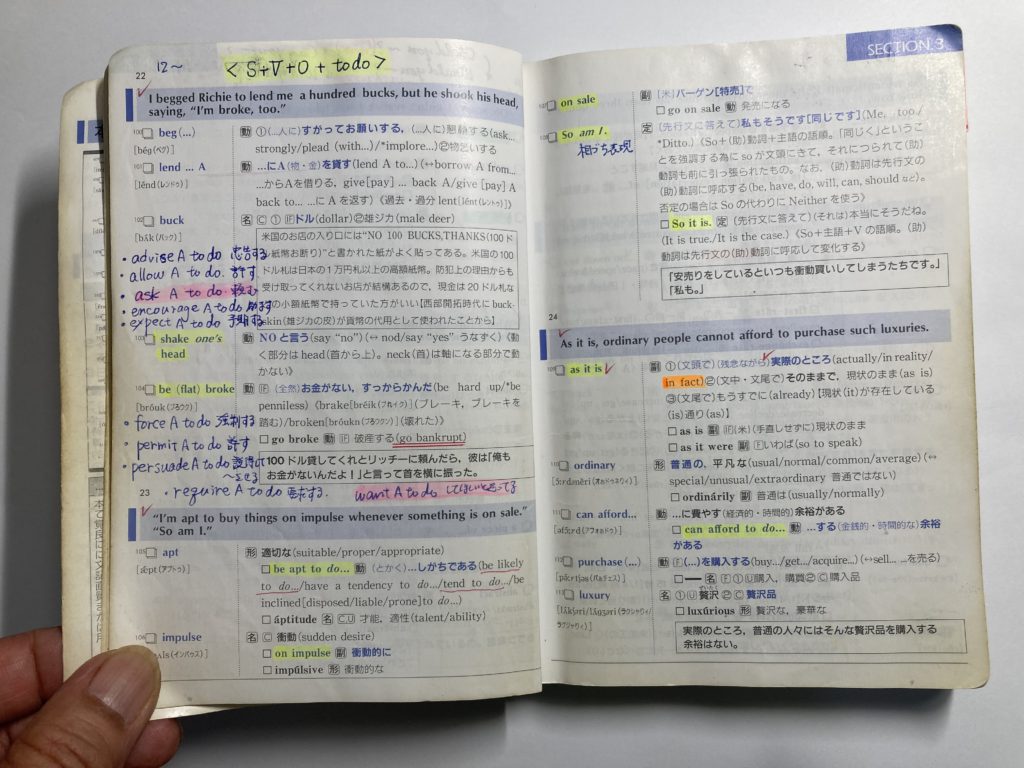 22
12～
< S+V+O + to do >
I begged Richie to lend me a hundred bucks, but he shook his head,
saying, “I'm broke, too.”
beg (...)
[bég(ベグ)]
動 ①(...人に)すがってお願いする，(...人に)懇願する(ask...
strongly/plead (with...)/*implore...)②物乞いする
101 lend ... A
[lénd(レンドゥ)]
動 ...にA(物・金)を貸す(lend A to...)(↔borrow A from...
...からAを借りる，give[pay] ... back A/give [pay] A
back to... ...に A を返す)《過去・過分 lent[lént(レントゥ)]》
102 buck
[bʌ́k(バック)]
名 C ①ドル(dollar)②雄ジカ(male deer)
米国のお店の入り口には“NO 100 BUCKS,THANKS(100ド
ル紙幣お断り)”と書かれた紙がよく貼ってある。米国の100
ドル札は日本の1万円札以上の高額紙幣。防犯上の理由からも
受け取ってくれないお店が結構あるので，現金は20ドル札な
の小額紙幣で持っていた方がいい【西部開拓時代にbuck-
skin(雄ジカの皮)が貨幣の代用として使われたことから】
・advise A to do 忠告する
・allow A to do. 許す
・ask A to do 頼む
・encourage A to do 励ます
・expect A to do 予期する
103 shake one's
head
動 NOと言う(say “no”)(↔ nod/say “yes” うなずく)《動
く部分は head(首から上)。neck(首)は軸になる部分で動
かない》
104 be (flat) broke
[bróuk(ブロウク)]
動 (全然)お金がない，すっからかんだ(be hard up/*be
penniless)《brake[bréik(ブレイク)](ブレーキ，ブレーキを
踏む)/broken[bróukn(ブロウクン)](壊れた)》
□ go broke 動 破産する(go bankrupt)
・force A to do 強制する
・permit A to do 許す
・persuade A to do 説得して
～させる
・require A to do 要求する.
want A to do してほしいと思ってる
100ドル貸してくれとリッチーに頼んだら，彼は「俺も
お金がないんだよ！」と言って首を横に振った。
23
“I'm apt to buy things on impulse whenever something is on sale.”
“So am I.”
105 apt
[ǽpt(アプトゥ)]
形 適切な(suitable/proper/appropriate)
□ be apt to do... 動 (とかく)...しがちである(be likely
to do.../have a tendency to do.../tend to do.../be
inclined[disposed/liable/prone]to do...)
□ áptitude 名 C,U 才能，適性(talent/ability)
106 impulse
名 C 衝動(sudden desire)
□ on impulse 副 衝動的に
□ impúlsive 形 衝動的な
SECTION 3
107 on sale
副 [米]バーゲン[特売]で
□ go on sale 動 発売になる
108 So am I.
相づち表現
定 (先行文に答えて)私もそうです[同じです](Me, too./
*Ditto.)《So+(助)動詞+主語の語順。「同じく」というこ
とを強調する為に so が文頭にきて，それにつられて(助)
動詞も前に引っ張られたもの。なお，(助)動詞は先行文の
(助)動詞に呼応する(be, have, do, will, can, should など)。
否定の場合は So の代わりに Neither を使う》
□ So it is. 定 (先行文に答えて)(それは)本当にそうだね。
(It is true./It is the case.)《So+主語+V の語順。(助)
動詞は先行文の(助)動詞に呼応して変化する》
「安売りをしているといつも衝動買いしてしまうたちです。」
「私も。」
24
As it is, ordinary people cannot afford to purchase such luxuries.
109 as it is
副 ①(文頭で)(残念ながら)実際のところ(actually/in reality/
in fact)②(文中・文尾で)そのままで，現状のまま(as is)
③(文尾で)もうすでに(already)【現状(it)が存在している
(is)通り(as)】
□ as is 副 (米)(手直しせずに)現状のまま
□ as it were 副 F いわば(so to speak)
110 ordinary
[ɔ́ːrdənèri(オードゥネリ)]
形 普通の，平凡な(usual/normal/common/average)(↔
special/unusual/extraordinary 普通ではない)
□ ordinárily 副 普通は(usually/normally)
111 can afford...
[əfɔ́ːrd(アフォードゥ)]
動 ...に費やす(経済的・時間的)余裕がある
□ can afford to do... 動 ...する(金銭的・時間的な)余裕
がある
112 purchase (...)
[pə́ːrtʃəs(パーチェス)]
動 F (...)を購入する(buy.../get.../acquire...)(↔sell... ...を売る)
□ ━ 名 F ①U 購入，購買②C 購入品
113 luxury
[lʌ́kʃəri/lʌ́gʒəri(ラクシャリィ/
ラグジャリィ)]
名 ①U 贅沢②C 贅沢品
□ luxúrious 形 贅沢な，豪華な
実際のところ，普通の人々にはそんな贅沢品を購入する
余裕はない。